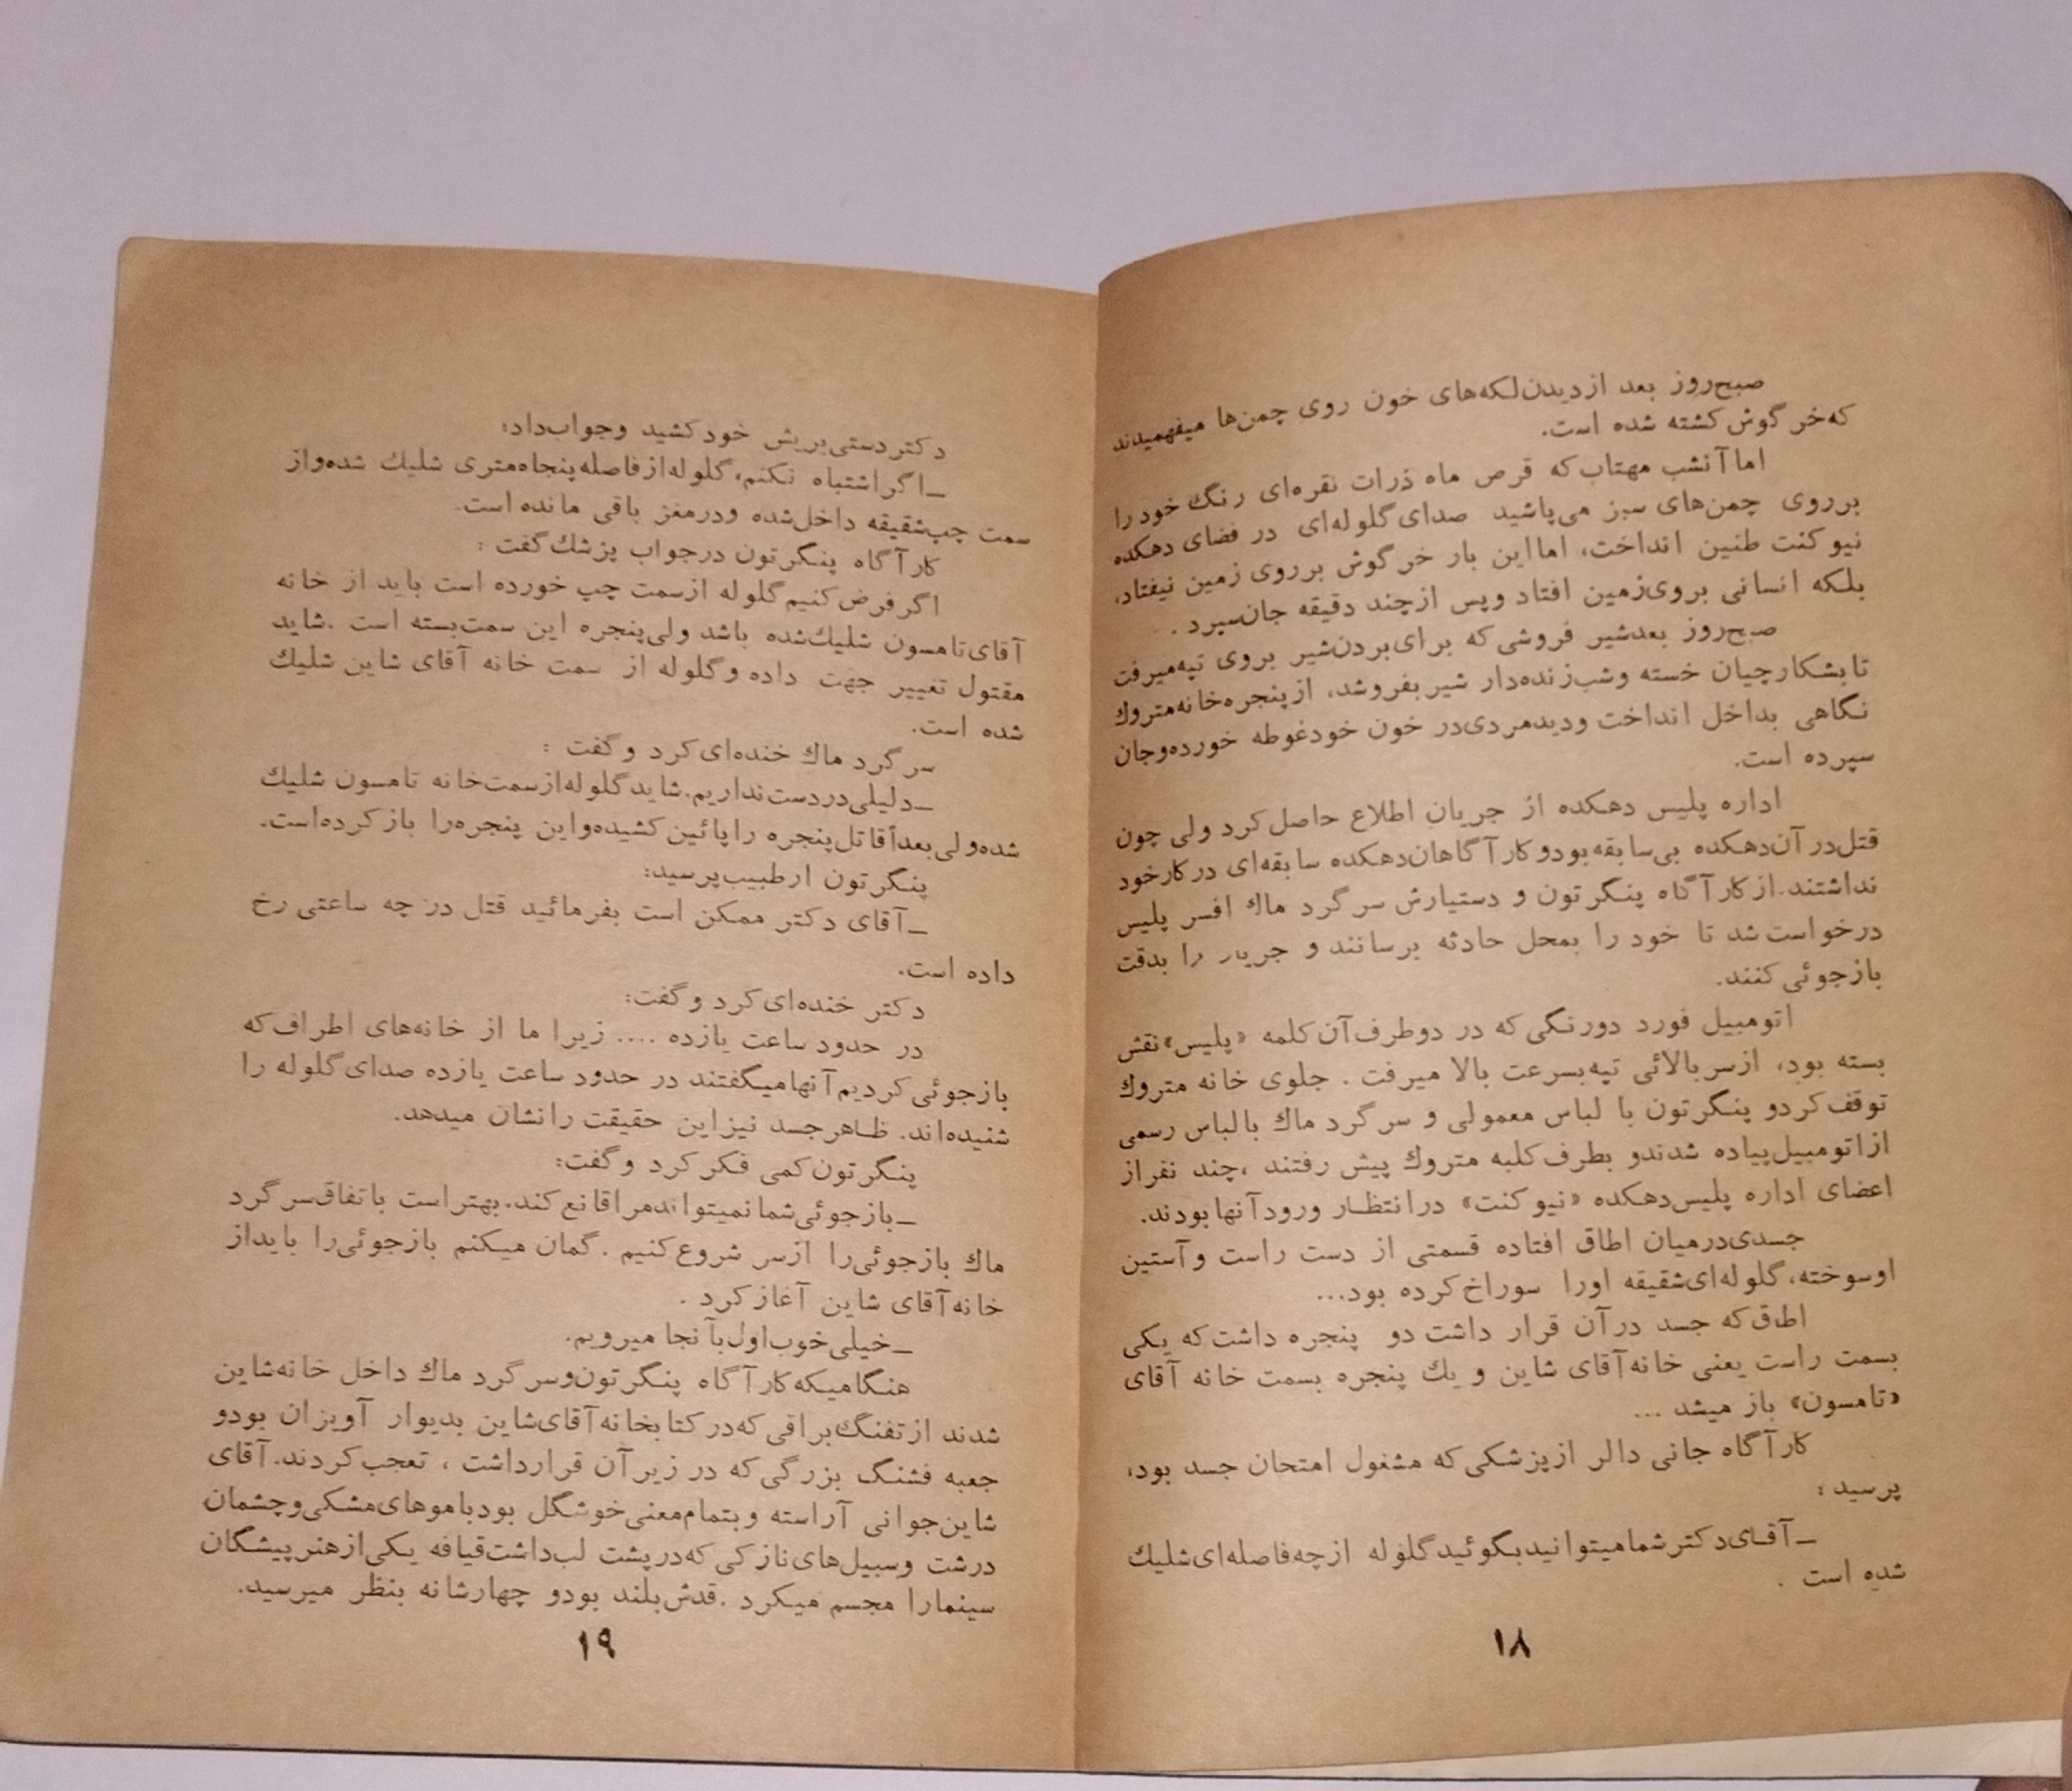 صبح‌روز بعد ازدیدن‌لکه‌های خون روی چمن‌ها میفهمیدند
که‌خرگوش‌کشته شده است.
اماآنشب مهتاب‌که قرص ماه ذرات نقره‌ای رنگ خود را
برروی چمن‌های سبز می‌پاشید صدای‌گلوله‌ای در فضای دهکده
نیوکنت طنین انداخت، امااین بار خرگوش برروی زمین نیفتاد،
بلکه انسانی بروی‌زمین افتاد وپس ازچند دقیقه جان‌سپرد .
صبح‌روز بعدشیر فروشی‌که برای‌بردن‌شیر بروی تپه‌میرفت
تابشکارچیان خسته وشب‌زنده‌دار شیربفروشد، ازپنجره‌خانه‌متروك
نگاهی بداخل انداخت ودیدمردی‌در خون خودغوطه خورده‌وجان
سپرده است.
اداره پلیس دهکده از جریان اطلاع حاصل‌کرد ولی چون
قتل‌در آن‌دهکده بی‌سابقه‌بودوکارآگاهان‌دهکده سابقه‌ای درکارخود
نداشتند.ازکارآگاه پنگرتون و دستیارش سرگرد ماك افسر پلیس
درخواست‌شد تا خود را بمحل حادثه برسانند و جریان را بدقت
بازجوئی‌کنند.
اتومبیل فورد دورنگی‌که در دوطرف‌آن‌کلمه «پلیس»نقش
بسته بود، ازسربالائی تپه‌بسرعت بالا میرفت . جلوی خانه متروك
توقف‌کردو پنگرتون با لباس معمولی و سرگرد ماك بالباس رسمی
ازاتومبیل‌پیاده شدندو بطرف‌کلبه متروك پیش رفتند ،چند نفراز
اعضای اداره پلیس‌دهکده «نیوکنت» درانتظار ورودآنهابودند.
جسدی‌درمیان اطاق افتاده قسمتی از دست راست وآستین
اوسوخته،گلوله‌ای‌شقیقه اورا سوراخ‌کرده بود...
اطاق‌که جسد درآن قرار داشت دو پنجره داشت‌که یکی
بسمت راست یعنی خانه‌آقای شاین و یك پنجره بسمت خانه آقای
«تامسون» باز میشد ...
کارآگاه جانی دالر ازپزشکی‌که مشغول امتحان جسد بود،
پرسید :
ـ آقای‌دکترشمامیتوانیدبگوئیدگلوله ازچه‌فاصله‌ای‌شلیك
شده است .
۱۸
دکتردستی‌بریش خودکشید وجواب‌داد:
ـ اگراشتباه نکنم،گلوله‌ازفاصله‌پنجاه‌متری شلیك شده‌واز
سمت چپ‌شقیقه داخل‌شده ودرمغز باقی مانده‌است.
کارآگاه پنگرتون درجواب پزشك‌گفت :
اگرفرض‌کنیم‌گلوله ازسمت چپ خورده است باید از خانه
آقای‌تامسون شلیك‌شده باشد ولی‌پنجره این سمت‌بسته است .شاید
مقتول تغییر جهت داده وگلوله از سمت خانه آقای شاین شلیك
شده است.
سرگرد ماك خنده‌ای‌کرد وگفت :
ـ دلیلی‌دردست‌نداریم.شایدگلوله‌ازسمت‌خانه تامسون شلیك
شده‌ولی‌بعدآقاتل‌پنجره راپائین‌کشیده‌واین پنجره‌را بازکرده‌است.
پنگرتون ازطبیب‌پرسید:
ـ آقای دکتر ممکن است بفرمائید قتل در چه ساعتی رخ
داده است.
دکتر خنده‌ای‌کرد وگفت:
در حدود ساعت یازده .... زیرا ما از خانه‌های اطراف‌که
بازجوئی‌کردیم‌آنهامیگفتند در حدود ساعت یازده صدای‌گلوله را
شنیده‌اند. ظاهرجسد نیزاین حقیقت رانشان میدهد.
پنگرتون‌کمی فکرکرد وگفت:
ـ بازجوئی‌شمانمیتواندمراقانع‌کند.بهتراست باتفاق‌سرگرد
ماك بازجوئی‌را ازسر شروع‌کنیم .گمان میکنم بازجوئی‌را بایداز
خانه‌آقای شاین آغازکرد .
ـ خیلی‌خوب‌اول‌بآنجا میرویم.
هنگامیکه‌کارآگاه پنگرتون‌وسرگرد ماك داخل خانه‌شاین
شدند ازتفنگ‌براقی‌که‌درکتابخانه‌آقای‌شاین بدیوار آویزان بودو
جعبه فشنگ بزرگی‌که در زیرآن قرارداشت ، تعجب‌کردند.آقای
شاین‌جوانی آراسته وبتمام‌معنی‌خوشگل بودباموهای‌مشکی‌وچشمان
درشت وسبیل‌های‌نازکی‌که‌درپشت لب‌داشت‌قیافه یکی‌ازهنرپیشگان
سینمارا مجسم میکرد .قدش‌بلند بودو چهارشانه بنظر میرسید.
۱۹